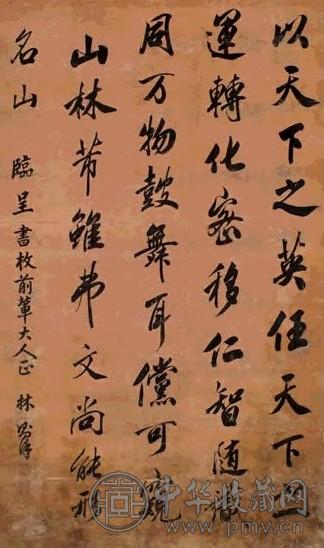 以天下之英任天下
運轉化密移仁智隨
同万物鼓舞耳儻可窺
山林芾雖弗文尚能形
名山
臨呈書枚前輩大人正 林則徐
中华收藏网
www.pmv.cn